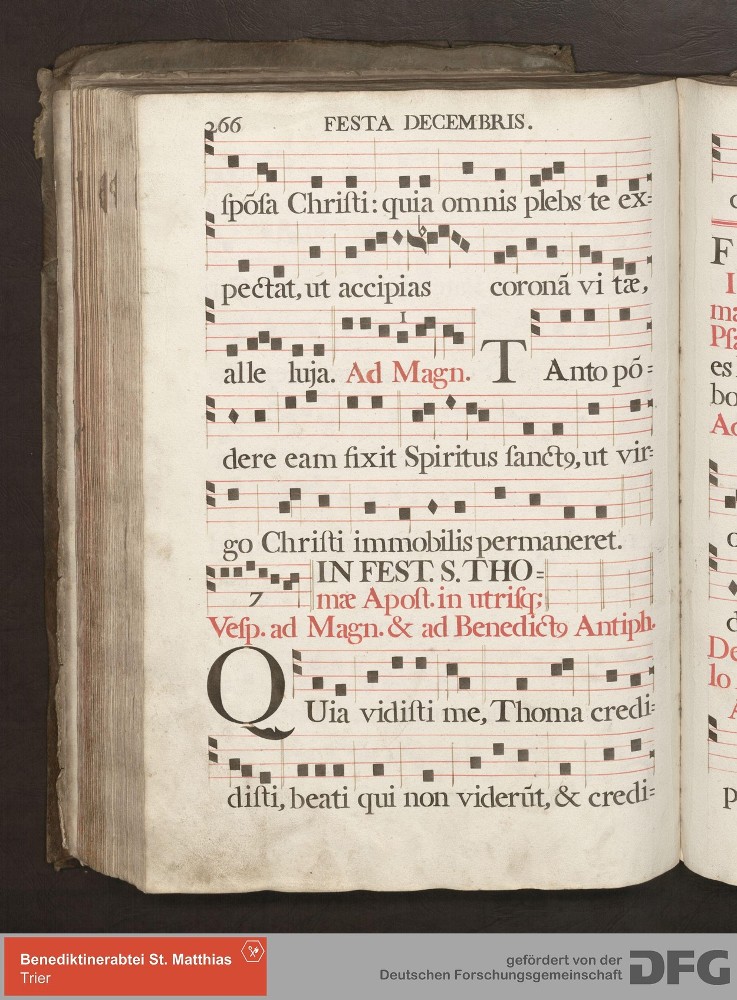 266 FESTA DECEMBRIS.
ſpõſa Chriſti: quia omnis plebs te ex=
pectat, ut accipias coronã vi tæ,
1
alle luja. Ad Magn. TAnto põ=
dere eam fixit Spiritus ſanctꝯ, ut vir=
go Chriſti immobilis permaneret.
7 IN FEST. S. THO=
mæ Apoſt. in utriſq;
Veſp. ad Magn. & ad Benedictꝯ Antiph.
QUia vidiſti me, Thoma credi=
diſti, beati qui non viderũt, & credi=
F
I
ma
Pſa
es
bo
Ad
d
De
lo
A
p
Benediktinerabtei St. Matthias
Trier
gefördert von der
Deutschen Forschungsgemeinschaft
DFG